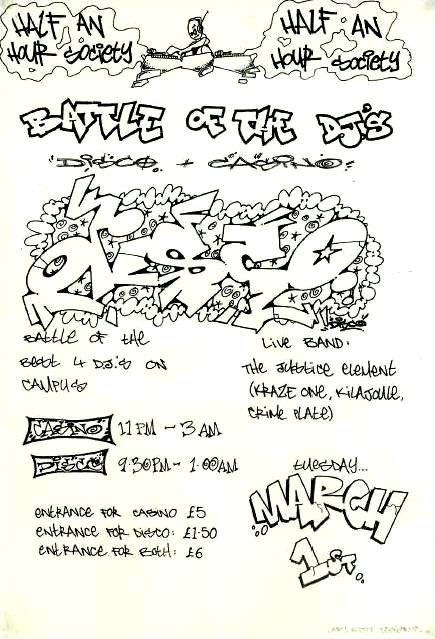 HALF AN
HOUR SOCIETY
HALF AN
HOUR SOCIETY
BATTLE OF THE DJ'S
DISCO + CASINO
DISCO
DISCO
BATTLE OF THE
BEST 4 DJ'S ON
CAMPUS
LIVE BAND:
THE JUSTICE ELEMENT
(KRAZE ONE, KILAJOULE,
CRIME PLATE)
CASINO 11PM - 3AM
DISCO 9.30PM - 1.00AM
TUESDAY...
MARCH
1ST.
ENTRANCE FOR CASINO £5
ENTRANCE FOR DISCO: £1.50
ENTRANCE FOR BOTH: £6